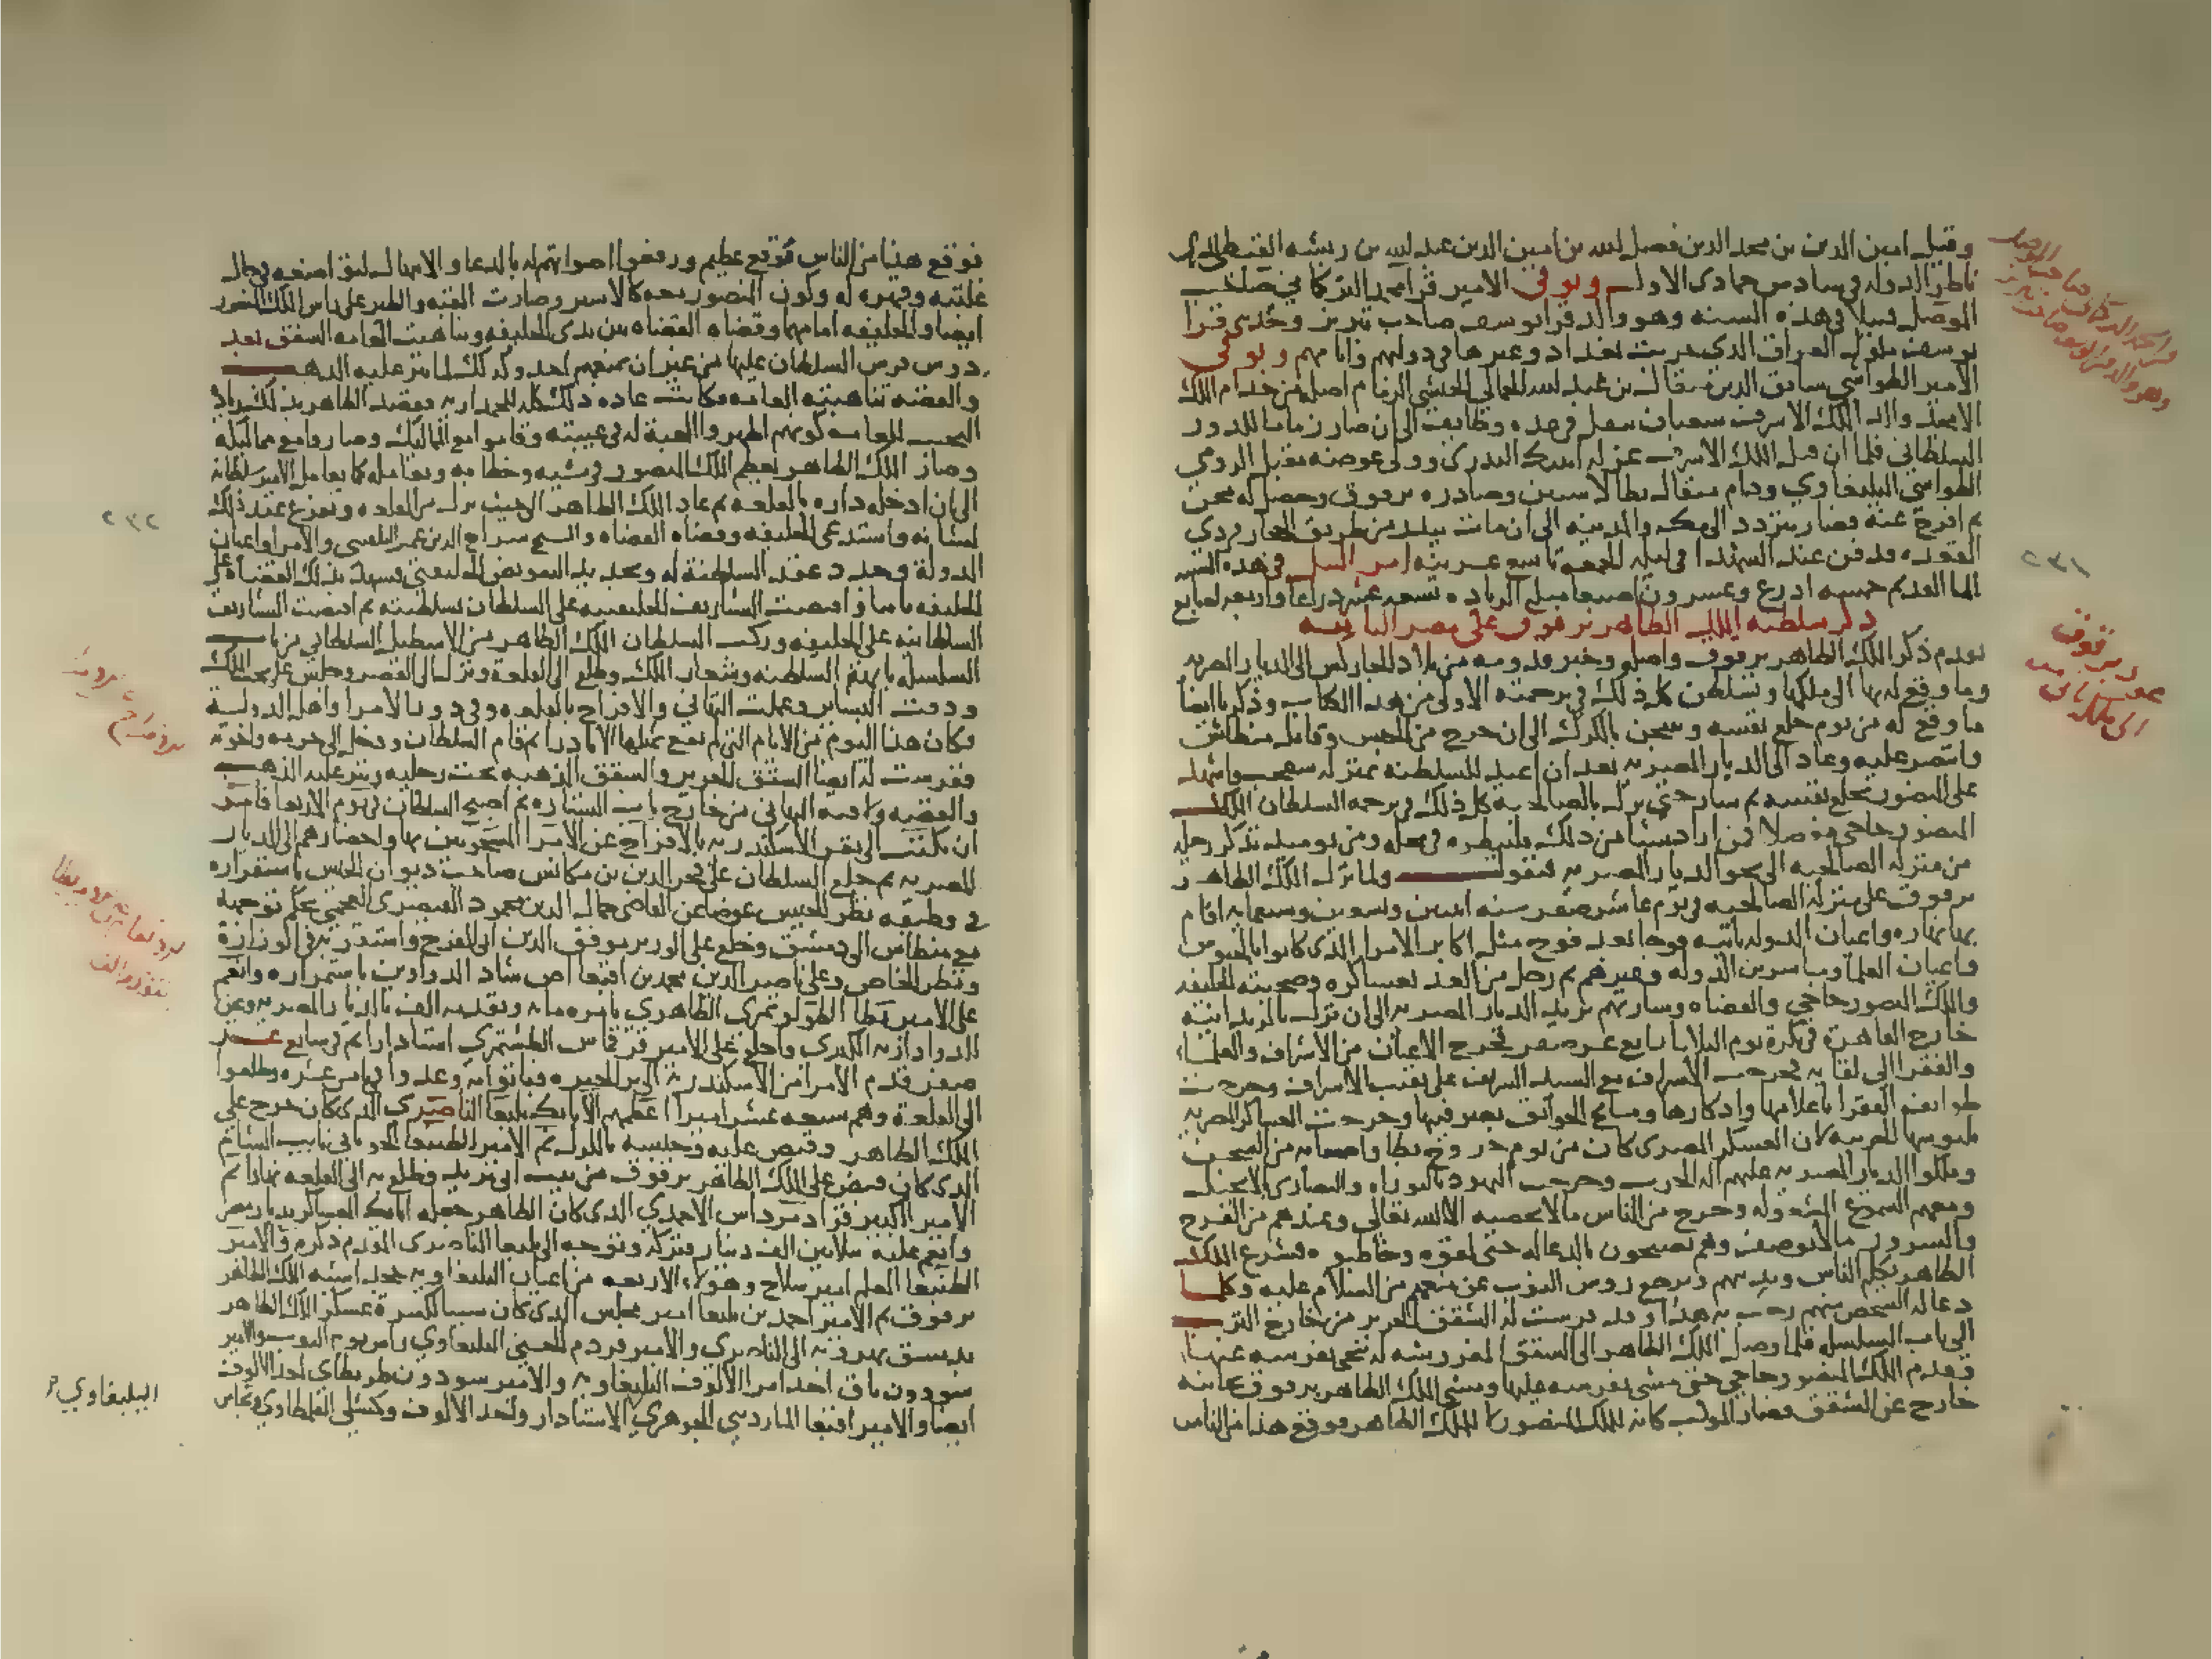 وقتل امين الدين بن مجد الدين فضل الله بن امين الدين عبد الله بن ريشه القبطي
ناظر الدولة في سادس جمادى الاولى وتوفي الامير قرا محمد التركماني صاحب
الموصل قتيلا في هذه السنه وهو والد قرا يوسف صاحب تبريز وجد بني قرا
يوسف ملوك العراق الذي خربت بغداد وغيرها في دولهم وايامهم وتوفي
الامير الطواشي سابق الدين مثقال بن عبد الله الجمالي الحبشي الزمام اصله من خدام الملك
الامجد والد الملك الاشرف شعبان تنقل في عده وظايف الى ان صار زماما للدور
السلطاني فلما ان قتل الملك الاشرف عزله اينبك البدري وولى عوضه مقبل الرومي
الطواشي اليلبغاوي ودام مثقال بطالا سنين وصادره برقوق وحصل له محن
ثم افرج عنه فصار يتردد الى مكه والمدينه الى ان مات ببلد من طريق الحجاز
القعده ودفن عند الشهدا في ليلة الجمعه تاسع عشرينه امر النيل في هذه السنه
الما القديم خمسه اذرع وعشرون اصبعا مبلغ الزياده تسعه عشر ذراعا واربعه اصابع
ذكر سلطنه الملك الظاهر برقوق على مصر الثانيه
تقدم ذكر الملك الظاهر برقوق واصله وخبر قدومه من بلاد الجاركس الى الديار المصريه
وما وقع له بها الى ملكها وتسلطن كل ذلك في ترجمته الاولى من هذا الكتاب وذكرنا ايضا
ما وقع له من يوم خلع نفسه وسجن بالكرك الى ان خرج من الحبس وقاتل منطاش
وانتصر عليه وعاد الى الديار المصريه بعد ان اعيد للسلطنه بمنزله شقحب واشهد
على المنصور بخلع نفسه ثم سار حتى نزل بالصالحيه كل ذلك في ترجمه السلطان الملك
المنصور حاجي مفصلا فمن اراد شيئا من ذلك فلينظره في محله ومن يوميذ نذكر رحيله
من منزله الصالحيه الى نحو الديار المصريه فنقول ولما نزل الملك الظاهر
برقوق على منزله الصالحيه في يوم عاشر صفر سنه اثنين وتسعين وسبعمايه اقام
بها نهاره واعيان الدوله تاتيه فوجا بعد فوج مثل اكابر الامرا الذي كانوا بالحبوس
واعيان العلما ومباشرين الدوله وغيرهم ثم رحل من الغد بعساكره وصحبته الخليفه
والملك المنصور حاجي والقضاه وسار بهم يريد الديار المصريه الى ان نزل بالريدانيه
خارج القاهرة في بكرة يوم الثلاثا رابع عشر صفر فخرج الاعيان من الاشراف والعلماء
والفقرا الى لقايه فخرجت الاشراف مع السيد الشريف علي نقيب الاشراف وخرجت
طوايف الفقرا باعلامها واذكارها ومشايخ الخوانق بصوفيتها وخرجت العساكر المصريه
ملبوسها الحربيه لان العسكر المصري كان من يوم خروج بطا واصحابه من السجن
وملكوا الديار المصريه عليهم اله الحرب وخرجت اليهود بالتوراه والنصارى بالانجيل
ومعهم الشموع الموقوده وخرج من الناس ما لا يحصيه الا الله تعالى وعندهم من الفرح
والسرور ما لا يوصف وهم يضجون بالدعا له حتى لقوه وخاطبوه فشرع الملك
الظاهر يكلم الناس ويدنيهم ويزجر روس النوب عن منعهم من السلام عليه وكلما
دعا له شخص منهم رحب به هذا وقد فرشت له الشقق الحرير من خارج الترب
الى باب السلسله فلما وصل الملك الظاهر الى الشقق المفروشه له تنحى بفرسه عنها
وقدم الملك المنصور حاجي حتى مشى بفرسه عليها ومشى الملك الظاهر برقوق بجانبه
خارج عن الشقق فصار الموكب كانه للملك المنصور لا للملك الظاهر فوقع هذا من الناس
٢٣١
برقوق
فوقع هذا من الناس موقع عظيم ورفعوا اصواتهم له بالدعا والابتهال لتواضعه في حال
غلبته وقهره له وكون المنصور معه كالاسير وصارت القبه والطير على راس الملك المنصور
ايضا والخليفه امامهما وقضاه القضاه بين يدي الخليفه وتناهبت العامه الشقق بعد
دوس فرس السلطان عليها من غير ان يمنعهم احد وكذلك لما نثر عليه الذهب
والفضه تناهبته العامه وكانت عاده ذلك كله للجمداريه فقصد الظاهر بذلك زياده
التحبب للعامه لكونهم اظهروا المحبة له في غيبته وقاموا مع المماليك وصاروا مع مماليكه
وصار الملك الظاهر يعظم الملك المنصور في مشيه وخطابه ويعامله كما يعامل الامير سلطانه
الى ان ادخله داره بالقلعه ثم عاد الملك الظاهر الى حيث نزل من القلعه وتفرغ عند ذلك
لشانه واستدعى الخليفه وقضاه القضاه والشيخ سراج الدين عمر البلقيني والامرا واعيان
الدولة وجدد عقد السلطنة له وتجديد التفويض الخليفتي فشهد بذلك القضاة على
الخليفه ثانيا وافيضت التشاريف الخليفتيه على السلطان بسلطنته ثم افيضت التشاريف
السلطانيه على الخليفه وركب السلطان الملك الظاهر من الاسطبل السلطاني من باب
السلسله بابهه السلطنه وشعار الملك وطلع الى القلعة ونزل الى القصر وجلس على تخت الملك
ودقت البشاير وعملت التهاني والافراح بالقلعه وفي دور الامرا واهل الدوله
وكان هذا اليوم من الايام التي لم يقع مثلها الا نادرا ثم قام السلطان ودخل الى حريمه واخوته
ففرشت له ايضا الشقق الحرير والشقق الذهبيه تحت رجليه ونثر عليه الذهب
والفضه ولاقته التهاني من خارج باب الستاره ثم اصبح السلطان في يوم الاربعا فامر
ان يكتب الى ثغر الاسكندريه بالافراج عن الامرا المسجونين بها واحضارهم الى الديار
المصريه ثم خلع السلطان على فخر الدين بن مكانس صاحب ديوان الجيش باستقراره
في وظيفه نظر الجيش عوضا عن القاضي جمال الدين محمود القيصري العجمي بحكم توجهه
مع منطاش الى دمشق وخلع على الوزير موفق الدين ابي الفرج واستقر به في الوزارة
ونظر الخاص وعلى ناصر الدين محمد بن اقبغا اص شاد الدواوين باستمراره وانعم
على الامير بطا الطولوتمري الظاهري بامره مايه وتقدمه الف بالديار المصريه وعين
للدواداريه الكبرى واخلع على الامير قرقماس الطشتمري استادارا ثم في سابع عشر
صفر قدم الامرا من الاسكندرية الى بر الجيزه فباتوا به وعدوا في ثامن عشره وطلعوا
الى القلعة وهم سبعه عشر اميرا اعظمهم الاتابك يلبغا الناصري الذي كان خرج على
الملك الظاهر وقبض عليه وحبسه بالكرك ثم الامير الطنبغا الجوباني نايب الشام
الذي كان قبض على الملك الظاهر برقوق من بيت ابي يزيد وطلع به الى القلعه نهارا ثم
الامير الكبير قرا دمرداش الاحمدي الذي كان الظاهر جعله اتابك العساكر بديار مصر
وانعم عليه بثلاثين الف دينار فتركه وتوجه الى يلبغا الناصري المقدم ذكره والامير
الطنبغا المعلم امير سلاح وهؤلاء الاربعه من اعيان اليلبغاويه خجداشيه الملك الظاهر
برقوق ثم الامير احمد بن يلبغا امير مجلس الذي كان سببا لكسرة عسكر الملك الظاهر
بدمشق بهروبه الى الناصري والامير قردم الحسني اليلبغاوي راس نوبه النوب والامير
سودون باق احد امرا الالوف اليلبغاويه والامير سودون طرنطاي احد الالوف
ايضا والامير اقبغا المارديني الجوهري الاستادار واحد الالوف وكشلي القلمطاوي وبجاس
٢٣٢
اليلبغاوي